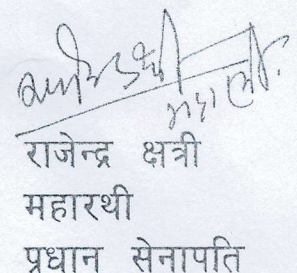 राजेन्द्र क्षत्री
महारथी
प्रधान सेनापति